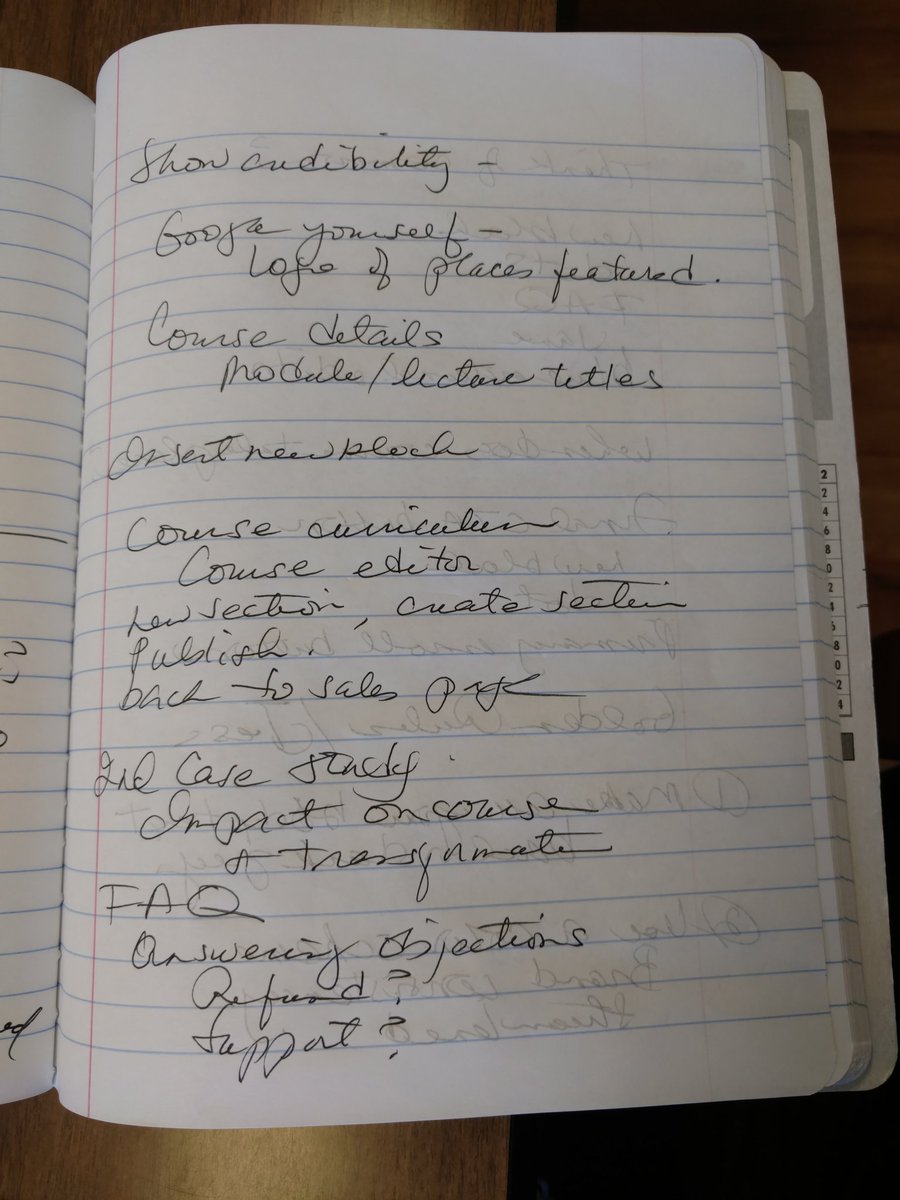 Show credibility –
Google yourself –
Logo of places featured.
Course details
Module/lecture titles
Insert new block
Course curriculum
Course editor
new section, create section
Publish.
back to sales page
2nd Case study
Impact on course
+ transformation
FAQ
Answering objections
Refund?
Support?
2
2
4
6
8
0
2
4
6
8
0
2
4